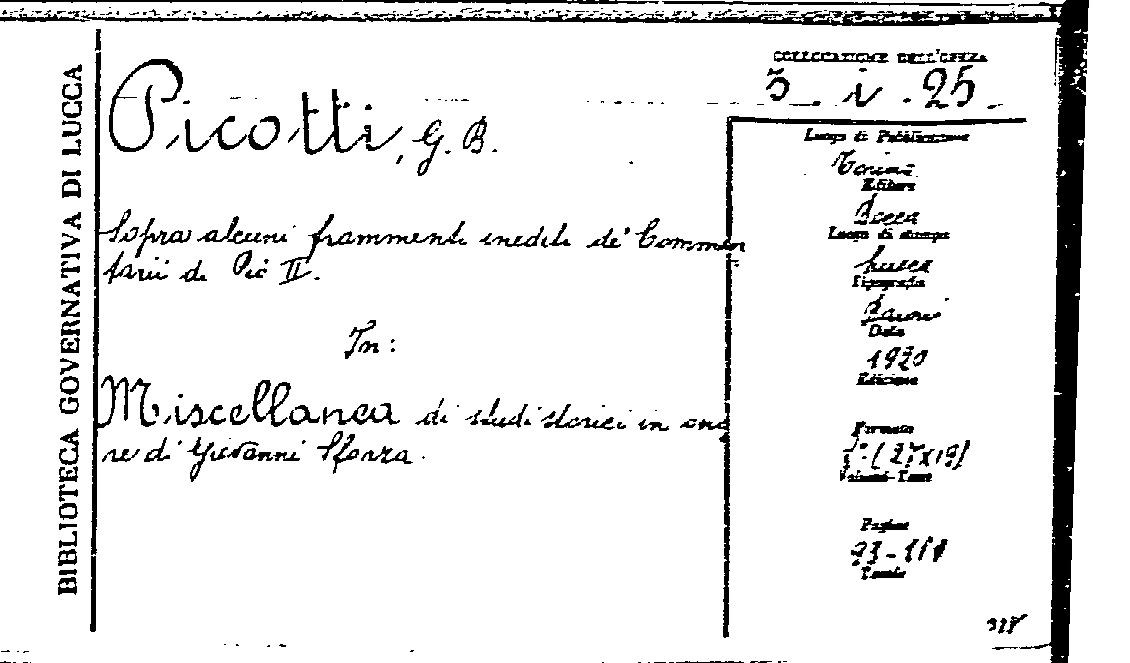 BIBLIOTECA GOVERNATIVA DI LUCCA
COLLOCAZIONE DELL'OPERA
5. i. 25.
Picotti, G. B.
Sopra alcuni frammenti inediti de' Commen
tarii di Pio II.
In:
Miscellanea di studi storici in ono
re di Giovanni Sforza.
Luogo di Pubblicazione
Torino
Editore
Bocca
Luogo di stampa
Lucca
Tipografia
Baroni
Data
1920
Edizione
Formato
(27x19)
Volumi-Tomi
Pagine
Tavole